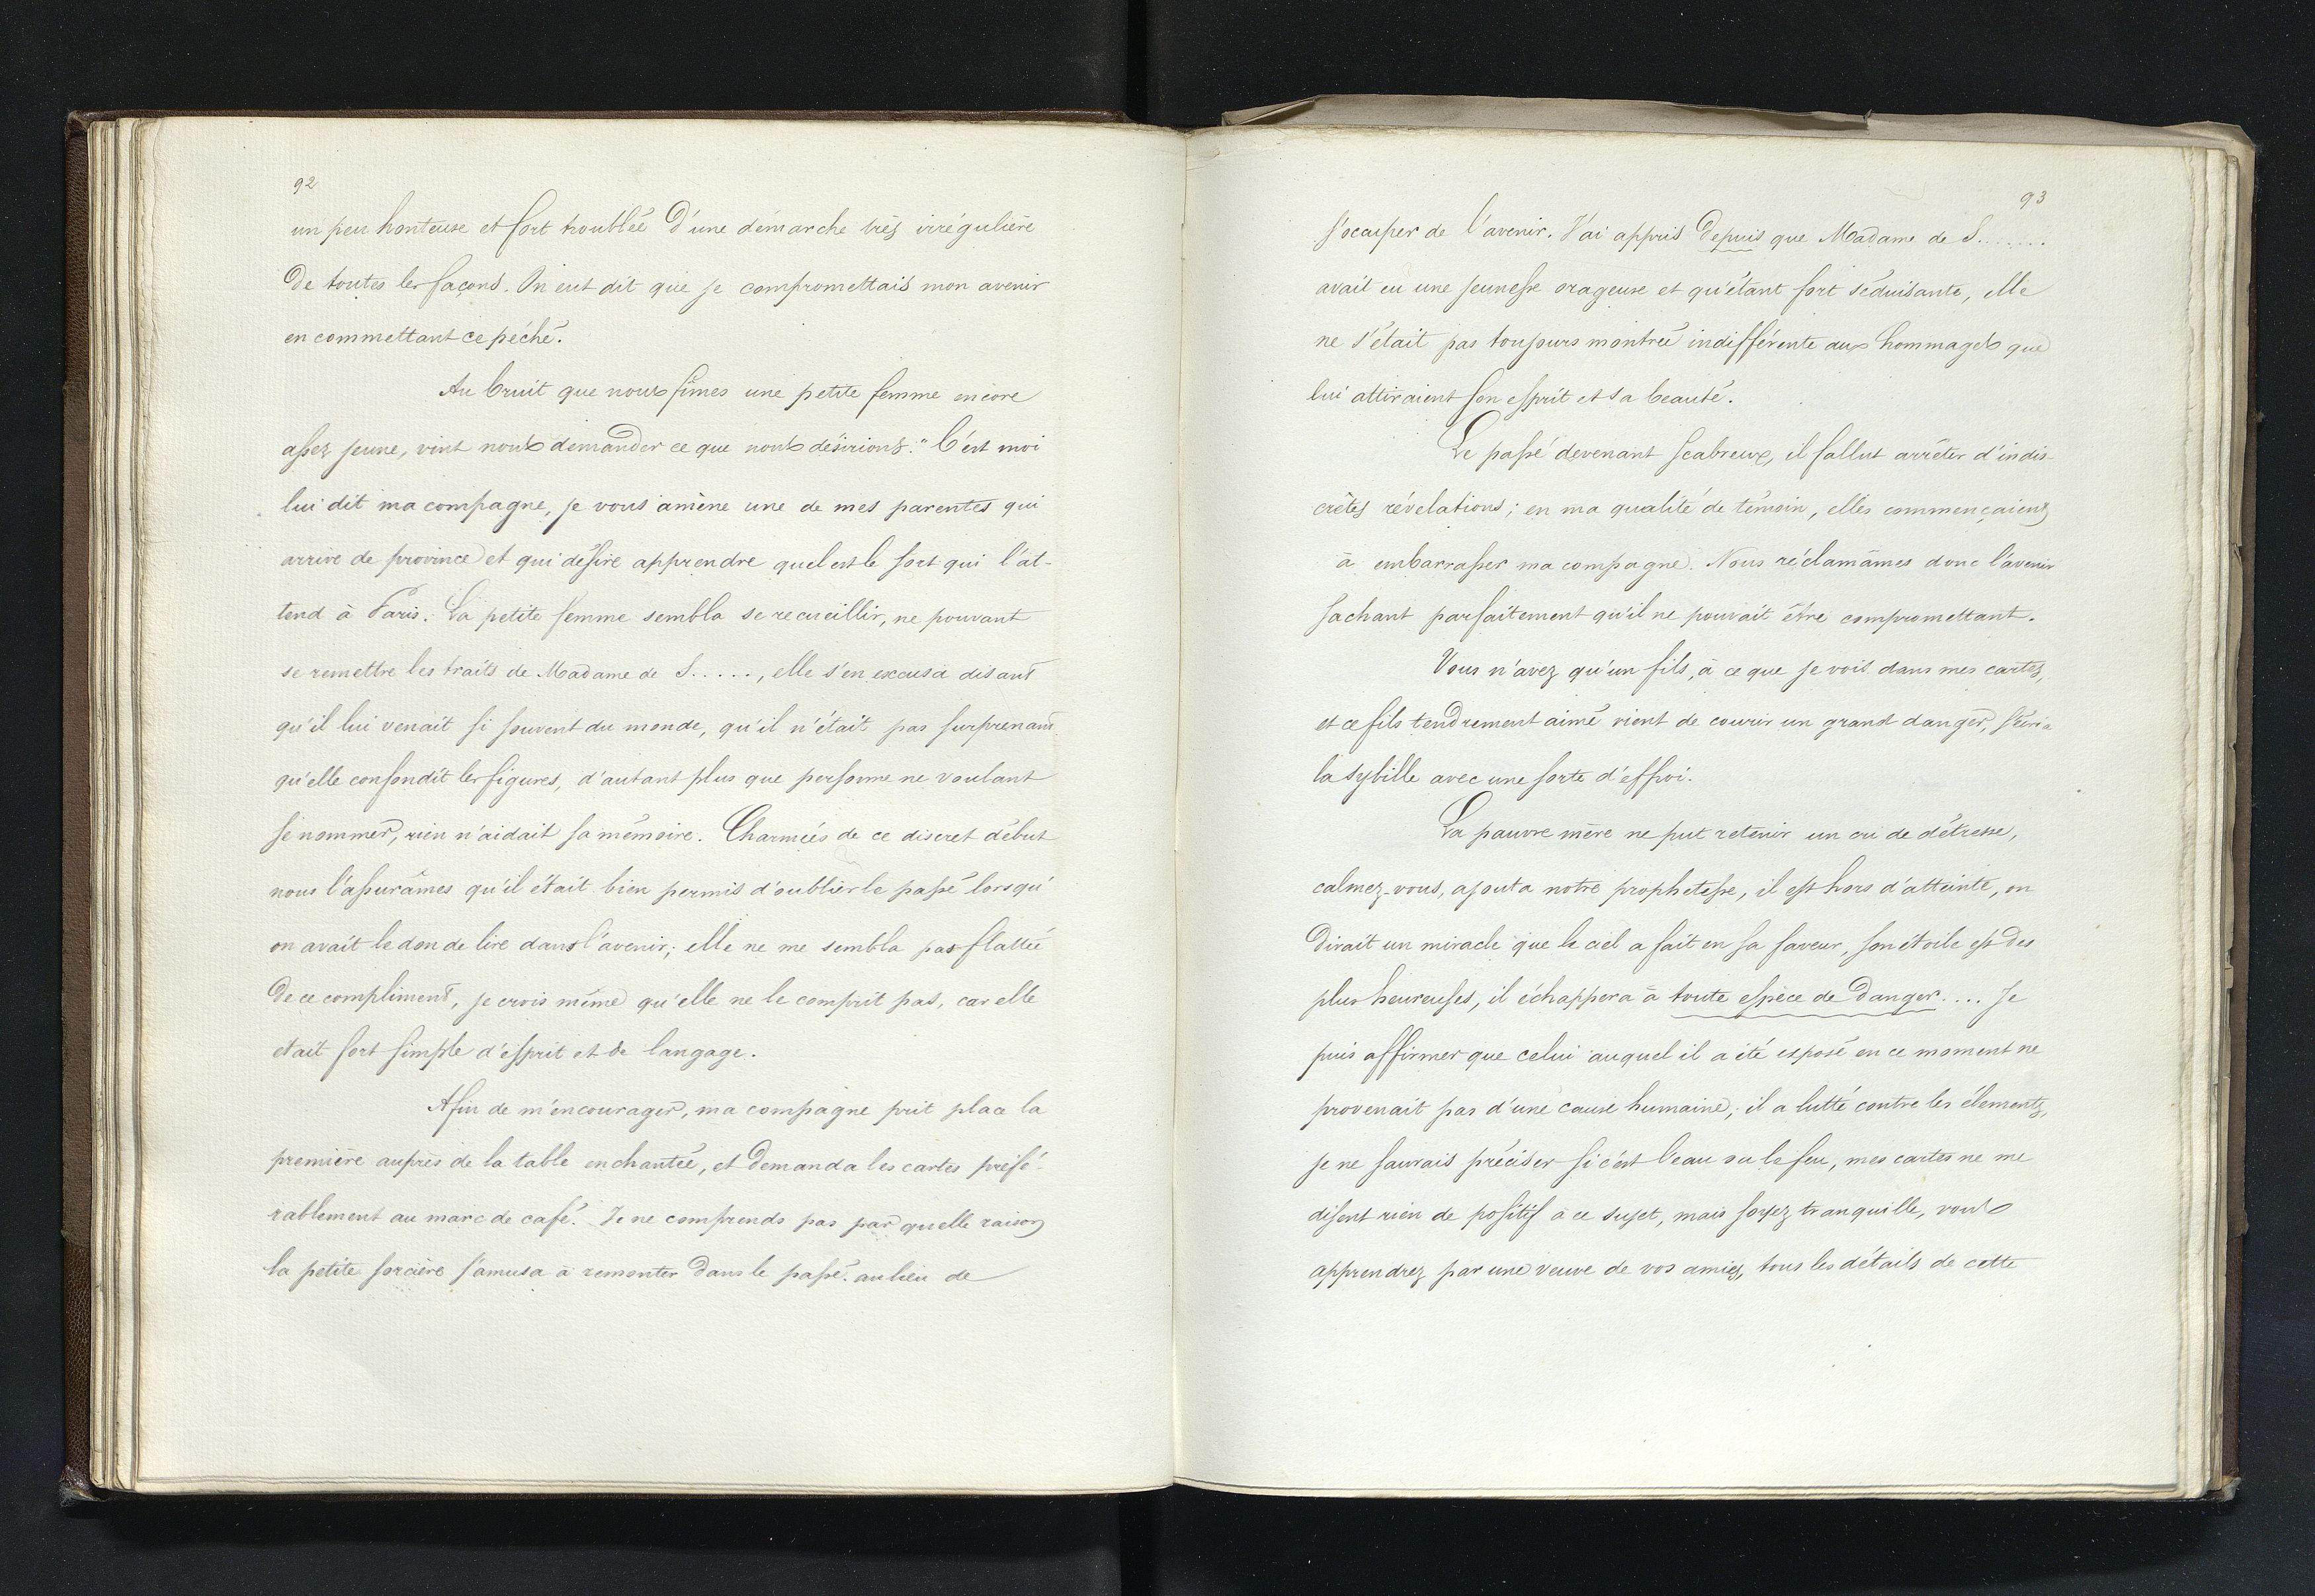 92
un peu honteuse et fort troublée d'une démarche très irrégulière
de toutes les façons. On eut dit que je compromettais mon avenir
en commettant ce péché.
Au bruit que nous fîmes une petite femme encore
assez jeune, vint nous demander ce que nous désirions. "C'est moi
lui dit ma compagne, je vous amène une de mes parentes qui
arrive de province et qui désire apprendre quel est le sort qui l'at-
tend à Paris. La petite femme sembla se recueillir, ne pouvant
se remettre les traits de Madame de S....., elle s'en excusa disant
qu'il lui venait si souvent du monde, qu'il n'était pas surprenant
qu'elle confondit les figures, d'autant plus que personne ne voulant
se nommer, rien n'aidait sa mémoire. Charmées de ce discret début
nous l'assurâmes qu'il était bien permis d'oublier le passé lorsqu'
on avait le don de lire dans l'avenir; elle ne me sembla pas flattée
de ce compliment, je crois même qu'elle ne le comprit pas, car elle
était fort simple d'esprit et de langage.
Afin de m'encourager, ma compagne prit place la
première auprès de la table enchantée, et demanda les cartes préfé-
rablement au marc de café. Je ne comprends pas par quelle raison
la petite sorcière s'amusa à remonter dans le passé au lieu de
93
s'occuper de l'avenir. J'ai appris depuis que Madame de S.......
avait eu une jeunesse orageuse et qu'étant fort séduisante, elle
ne s'était pas toujours montrée indifférente aux hommages que
lui attiraient son esprit et sa beauté.
Le passé devenant scabreux, il fallut arrêter d'indis-
crètes révélations; en ma qualité de témoin, elles commençaient
à embarrasser ma compagne. Nous réclamâmes donc l'avenir
sachant parfaitement qu'il ne pouvait être compromettant.
Vous n'avez qu'un fils, à ce que je vois dans mes cartes,
et ce fils tendrement aimé vient de courir un grand danger, s'écria
la sybille avec une sorte d'effroi.
La pauvre mère ne put retenir un cri de détresse,
calmez-vous, ajouta notre prophétesse, il est hors d'atteinte, on
dirait un miracle que le ciel a fait en sa faveur, son étoile est des
plus heureuses, il échappera à toute espèce de danger.... Je
puis affirmer que celui auquel il a été exposé en ce moment ne
provenait pas d'une cause humaine; il a lutté contre les éléments,
je ne saurais préciser si c'est l'eau ou le feu, mes cartes ne me
disent rien de positif à ce sujet, mais soyez tranquille, vous
apprendrez par une veuve de vos amies, tous les détails de cette